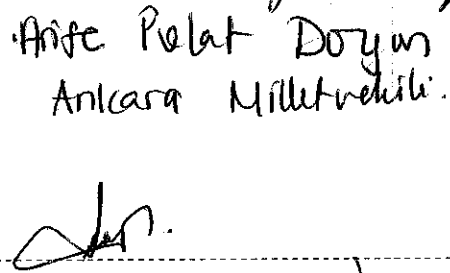 Arife Polat Düzgün
Ankara Milletvekili.